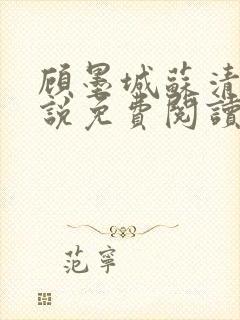 顾墨城蘇清
說免費閱讀
范寧